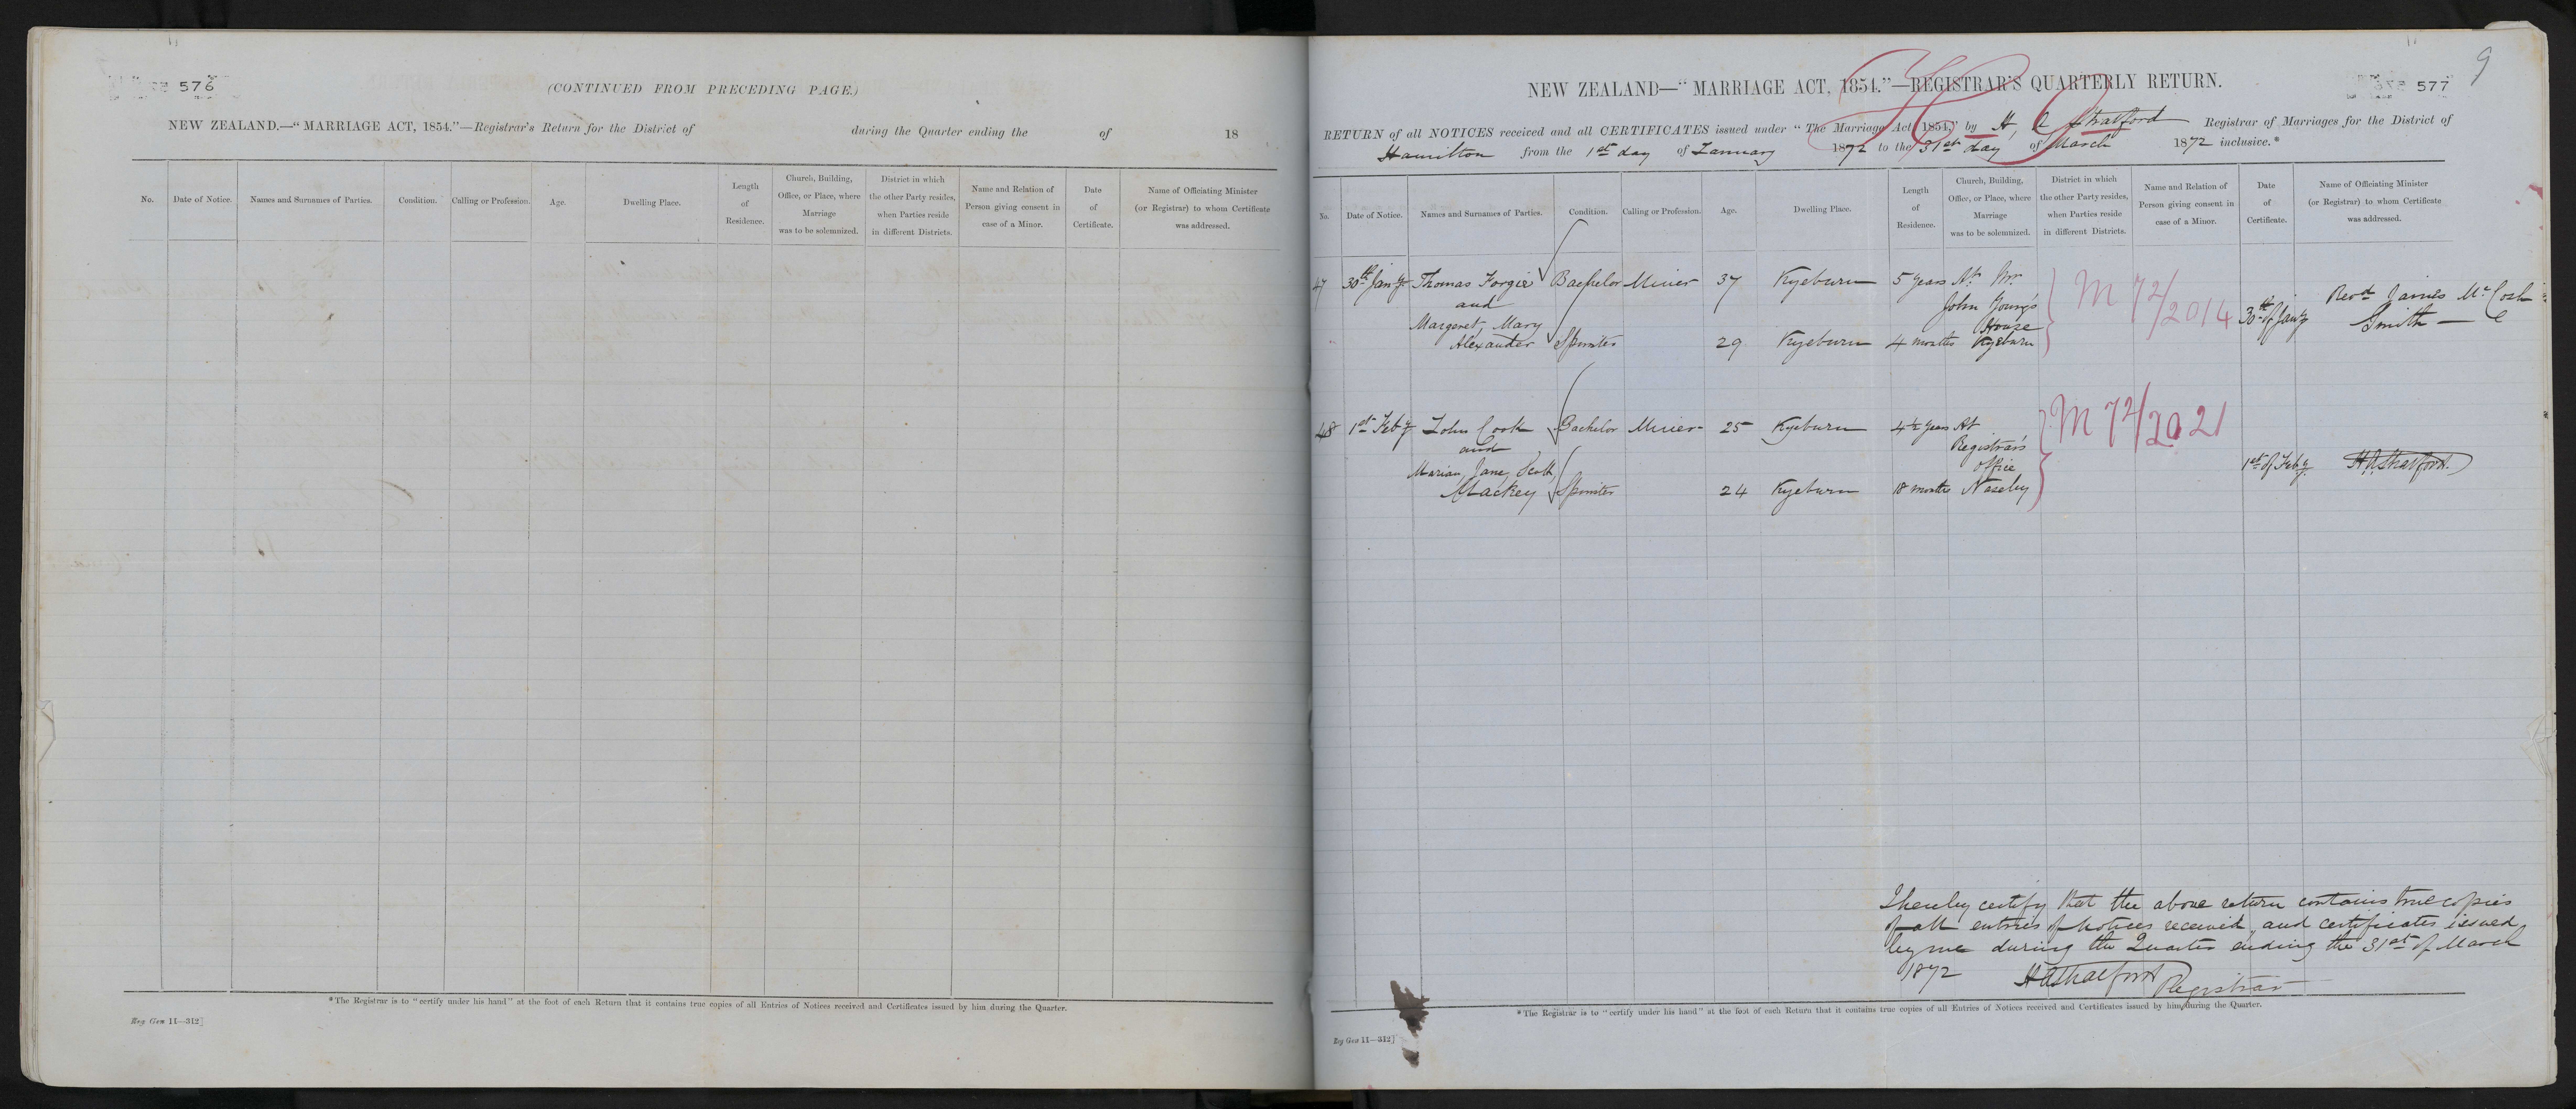 576
(CONTINUED FROM PRECEDING PAGE.)
NEW ZEALAND.—"MARRIAGE ACT, 1854."—Registrar's Return for the District of during the Quarter ending the of 18
No.
Date of Notice.
Names and Surnames of Parties.
Condition.
Calling or Profession.
Age.
Dwelling Place.
Length
of
Residence.
Church, Building,
Office, or Place, where
Marriage
was to be solemnized.
District in which
the other Party resides,
when Parties reside
in different Districts.
Name and Relation of
Person giving consent in
case of a Minor.
Date
of
Certificate.
Name of Officiating Minister
(or Registrar) to whom Certificate
was addressed.
*The Registrar is to "certify under his hand" at the foot of each Return that it contains true copies of all Entries of Notices received and Certificates issued by him during the Quarter.
Reg Gen 11—312]
9
577
NEW ZEALAND—"MARRIAGE ACT, 1854."—REGISTRAR'S QUARTERLY RETURN.
RETURN of all NOTICES received and all CERTIFICATES issued under "The Marriage Act 1854," by H, A Stratford Registrar of Marriages for the District of
Hamilton from the 1st day of January 1872 to the 31st day of March 1872 inclusive.*
No.
Date of Notice.
Names and Surnames of Parties.
Condition.
Calling or Profession.
Age.
Dwelling Place.
Length
of
Residence.
Church, Building,
Office, or Place, where
Marriage
was to be solemnized.
District in which
the other Party resides,
when Parties reside
in different Districts.
Name and Relation of
Person giving consent in
case of a Minor.
Date
of
Certificate.
Name of Officiating Minister
(or Registrar) to whom Certificate
was addressed.
47 30th Jany Thomas Forgie Bachelor Miner 37 Kyeburn 5 years At Mr.
and John Young's
Margaret, Mary House
Alexander Spinster 29 Kyeburn 4 months Kyeburn
M 72/2014
30th of Jany
Revd James McCosh
Smith
48 1st Feby John Cook Bachelor Miner 25 Kyeburn 4½ years At
and Registrar's
Marian, Jane, Scott, office
Mackey Spinster 24 Kyeburn 18 months Naseby
M 72/2021
1st of Feby
H A Stratford
I hereby certify that the above return contains true copies
of all entries of Notices received, and certificates issued
by me during the Quarter ending the 31st of March
1872 H A Stratford Registrar
*The Registrar is to "certify under his hand" at the foot of each Return that it contains true copies of all Entries of Notices received and Certificates issued by him during the Quarter.
Reg Gen 11—312]